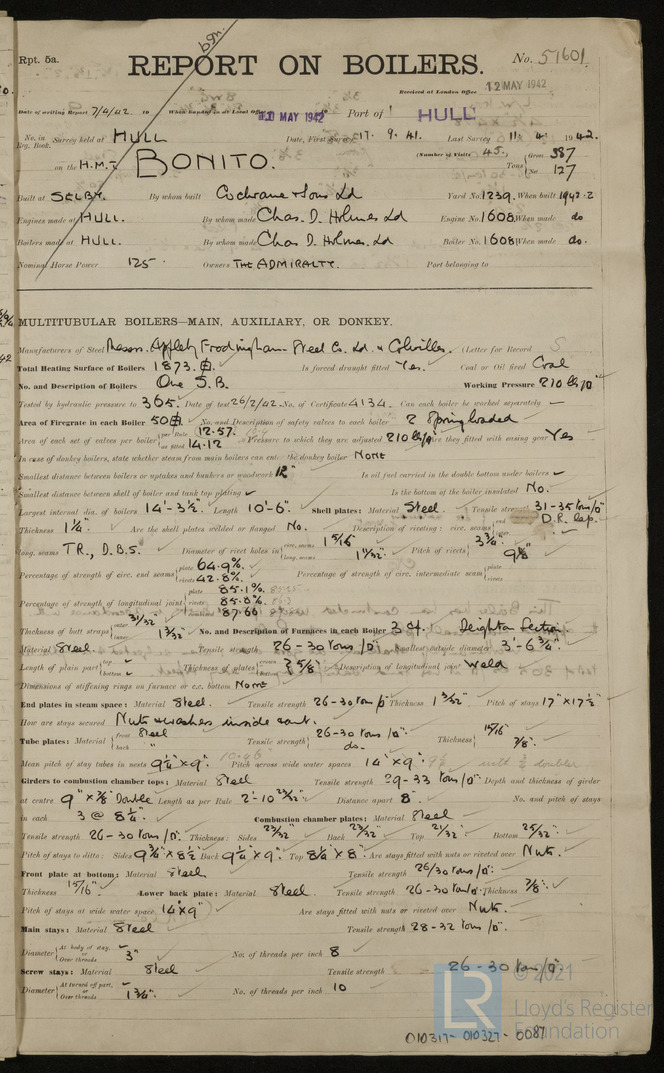 Rpt. 5a.
REPORT ON BOILERS.
No. 51601
Received at London Office 12 MAY 1942
Date of writing Report 7/4/42. 19 When handed in at Local Office MAY 1942 19 Port of HULL
No. in Reg. Book. Survey held at HULL Date, First Survey 17. 9. 41. Last Survey 11. 4. 1942.
(Number of Visits 45.)
on the H.M.T. BONITO. Tons { Gross 387 Net 127
Built at SELBY. By whom built Cochrane & Sons Ld Yard No. 1239. When built 1942.2
Engines made at HULL. By whom made Chas. D. Holmes Ld Engine No. 1608 When made do
Boilers made at HULL. By whom made Chas D. Holmes. Ld Boiler No. 1608 When made do.
Nominal Horse Power 125. Owners THE ADMIRALTY. Port belonging to
MULTITUBULAR BOILERS—MAIN, AUXILIARY, OR DONKEY.
Manufacturers of Steel Messrs. Appleby Frodingham Steel Co. Ld. & Colvilles. (Letter for Record S
Total Heating Surface of Boilers 1873. Is forced draught fitted Yes. Coal or Oil fired Coal
No. and Description of Boilers One S.B. Working Pressure 210 lbs
Tested by hydraulic pressure to 365. Date of test 26/2/42. No. of Certificate 4134. Can each boiler be worked separately —
Area of Firegrate in each Boiler 50 No. and Description of safety valves to each boiler 2 Spring loaded
Area of each set of valves per boiler { per Rule 12.57. as fitted 14.12 Pressure to which they are adjusted 210 lbs Are they fitted with easing gear Yes
In case of donkey boilers, state whether steam from main boilers can enter the donkey boiler NONE
Smallest distance between boilers or uptakes and bunkers or woodwork 12" Is oil fuel carried in the double bottom under boilers
Smallest distance between shell of boiler and tank top plating Is the bottom of the boiler insulated No.
Largest internal dia. of boilers 14'-3½" Length 10'-6" Shell plates: Material Steel Tensile strength 31-35 tons/□"
Thickness 1¼" Are the shell plates welded or flanged No. Description of riveting: circ. seams { end D.R. lap. inter.
long. seams T.R., D.B.S. Diameter of rivet holes in { circ. seams 1 5/16" long. seams 1 11/32" Pitch of rivets { 3¾" 9⅜"
Percentage of strength of circ. end seams { plate 64.9% rivets 42.8% Percentage of strength of circ. intermediate seam { plate rivets
Percentage of strength of longitudinal joint { plate 85.1% rivets 85.8% combined 87.66
Thickness of butt straps { outer 31/32" inner 1 3/32" No. and Description of Furnaces in each Boiler 3 Deighton Section
Material Steel. Tensile strength 26-30 tons/□" Smallest outside diameter 3'-6¾"
Length of plain part { top bottom Thickness of plates { crown bottom 5/8" Description of longitudinal joint Weld
Dimensions of stiffening rings on furnace or c.c. bottom NONE
End plates in steam space: Material Steel. Tensile strength 26-30 tons/□" Thickness 1 3/32" Pitch of stays 17" x 17½"
How are stays secured Nuts & washers inside & out.
Tube plates: Material { front Steel back " Tensile strength { 26-30 tons/□" do. Thickness { 15/16" 7/8"
Mean pitch of stay tubes in nests 9¼" x 9" Pitch across wide water spaces 14" x 9"
Girders to combustion chamber tops: Material Steel Tensile strength 29-33 tons/□" Depth and thickness of girder
at centre 9" x ⅞" Double Length as per Rule 2'-10 23/32" Distance apart 8" No. and pitch of stays
in each 3 @ 8¼" Combustion chamber plates: Material Steel
Tensile strength 26-30 tons/□" Thickness: Sides 23/32" Back 23/32" Top 21/32" Bottom 25/32"
Pitch of stays to ditto: Sides 9¾" x 8½" Back 9¼" x 9" Top 8¼" x 8" Are stays fitted with nuts or riveted over Nuts.
Front plate at bottom: Material Steel Tensile strength 26/30 tons/□"
Thickness 15/16" Lower back plate: Material Steel. Tensile strength 26-30 tons/□" Thickness 7/8"
Pitch of stays at wide water space 14" x 9" Are stays fitted with nuts or riveted over Nuts.
Main stays: Material Steel Tensile strength 28-32 tons/□"
Diameter { At body of stay, or Over threads 3" No. of threads per inch 8
Screw stays: Material Steel Tensile strength 26-30 tons/□"
Diameter { At turned off part, or Over threads 1¾" No. of threads per inch 10
© 2021
LR
Lloyd's Register
Foundation
010317-010327-0087